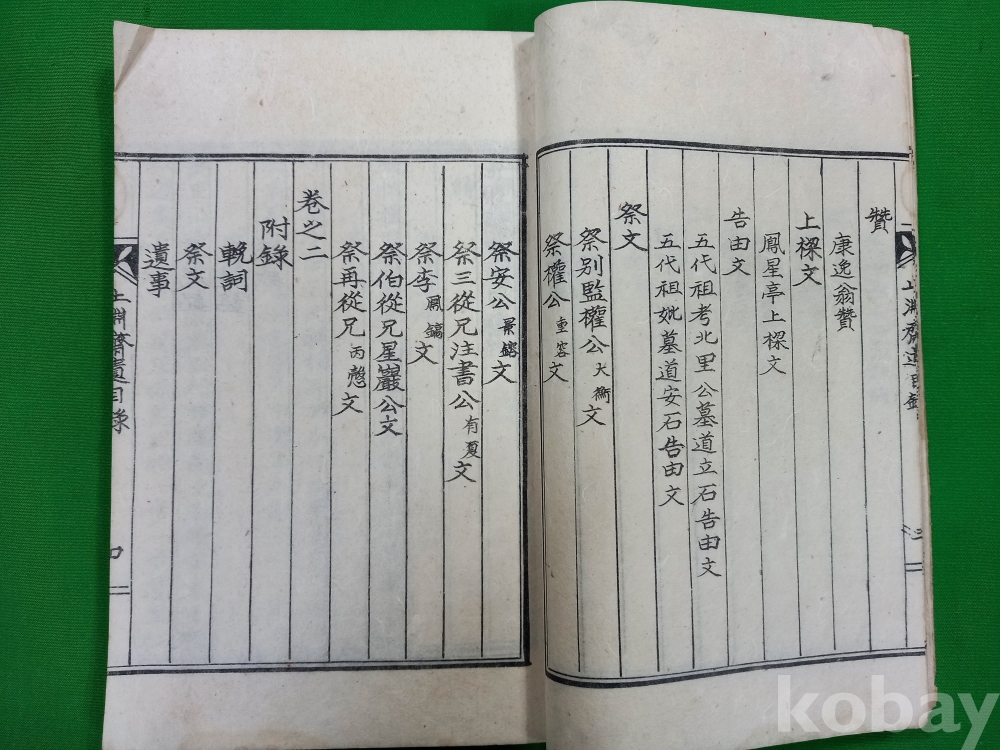 贊
康逸翁贊
上樑文
鳳星亭上樑文
告由文
五代祖考北里公墓道立石告由文
五代祖妣墓道安石告由文
祭文
祭別監權公大衡文
祭權公重容文
祭安公景鎔文
祭三從兄注書公有夏文
祭李鳳鎬文
祭伯從兄星巖公文
祭再從兄丙慇文
卷之二
附錄
輓詞
祭文
遺事
上淵齋遺目錄
kobay